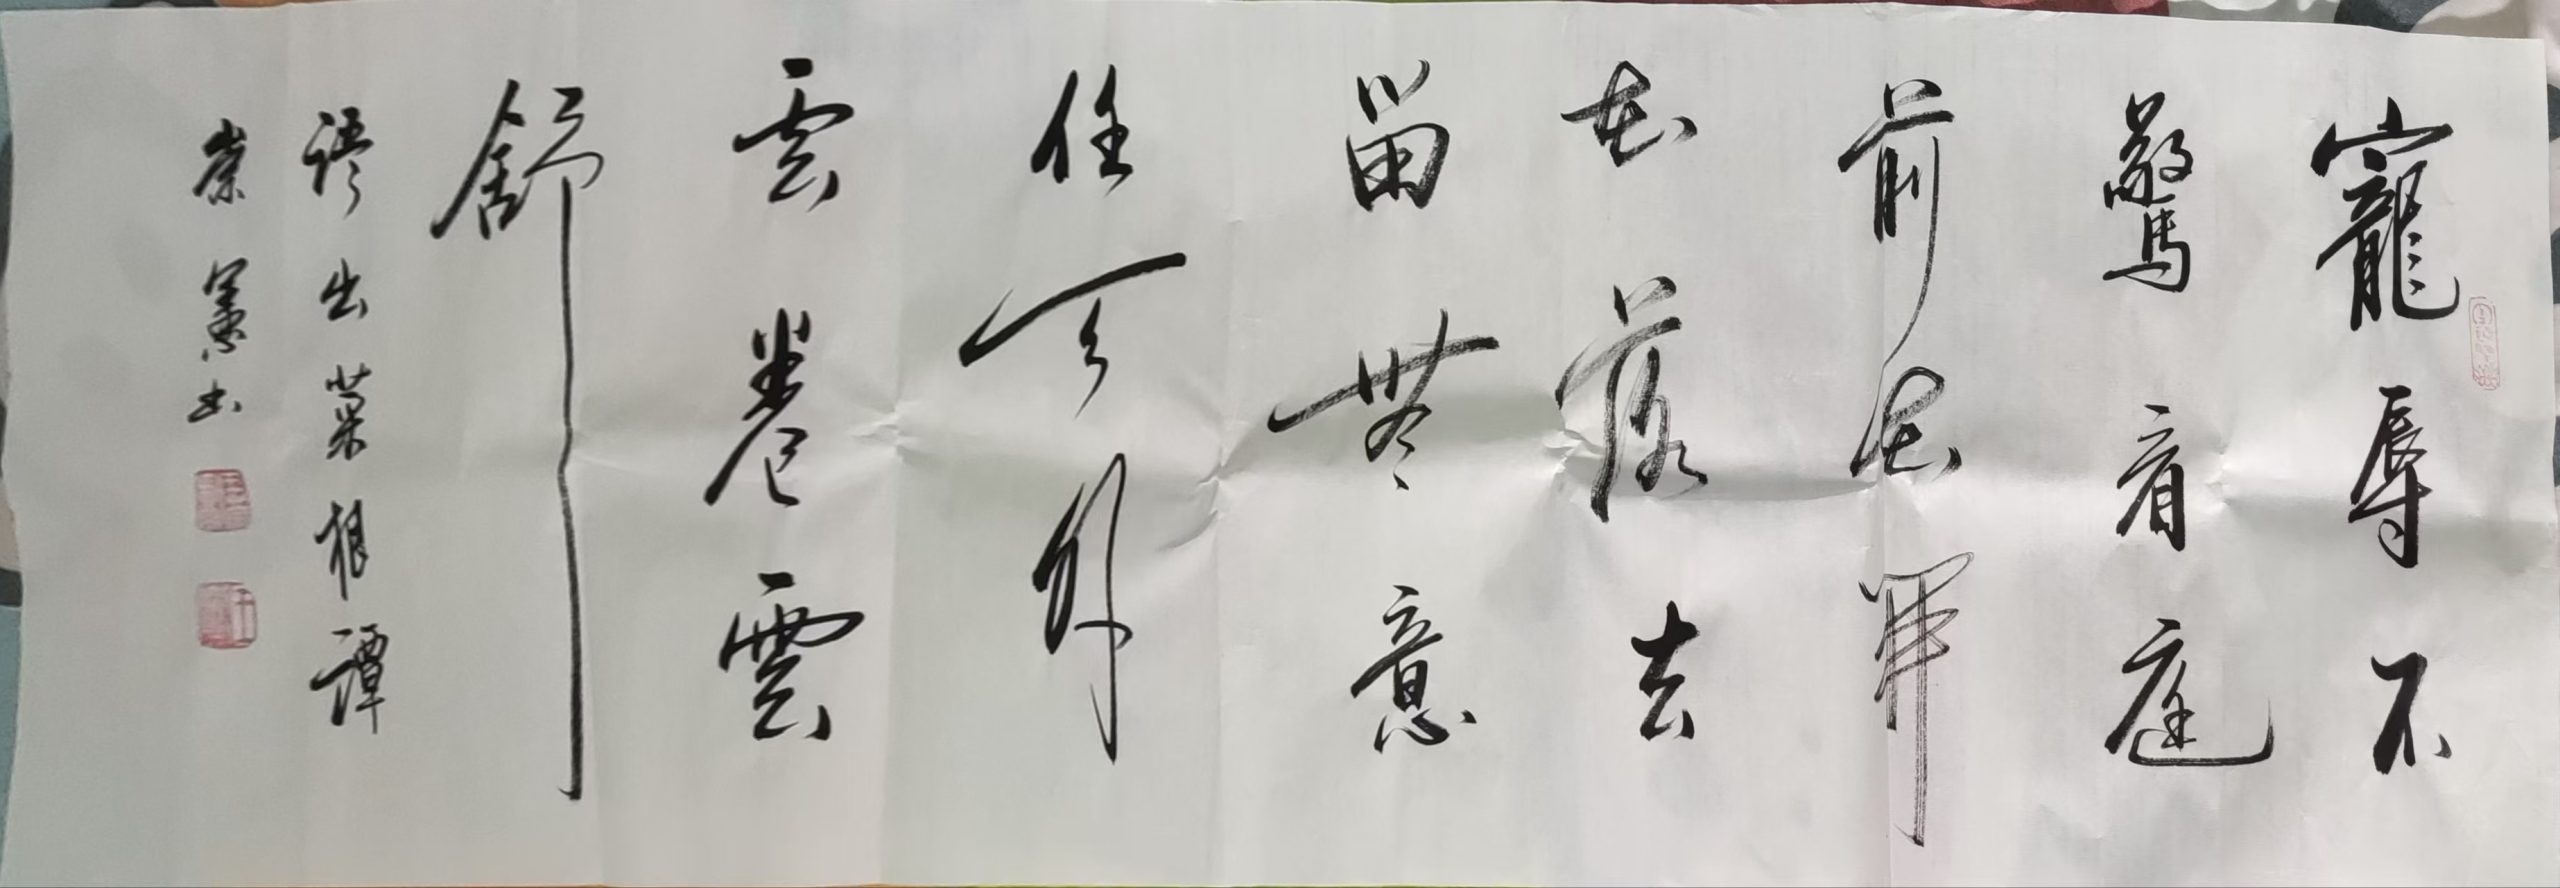 寵辱不
驚看庭
前花開
花落去
留無意
任天外
雲卷雲
舒
語出菜根譚
崇墨書